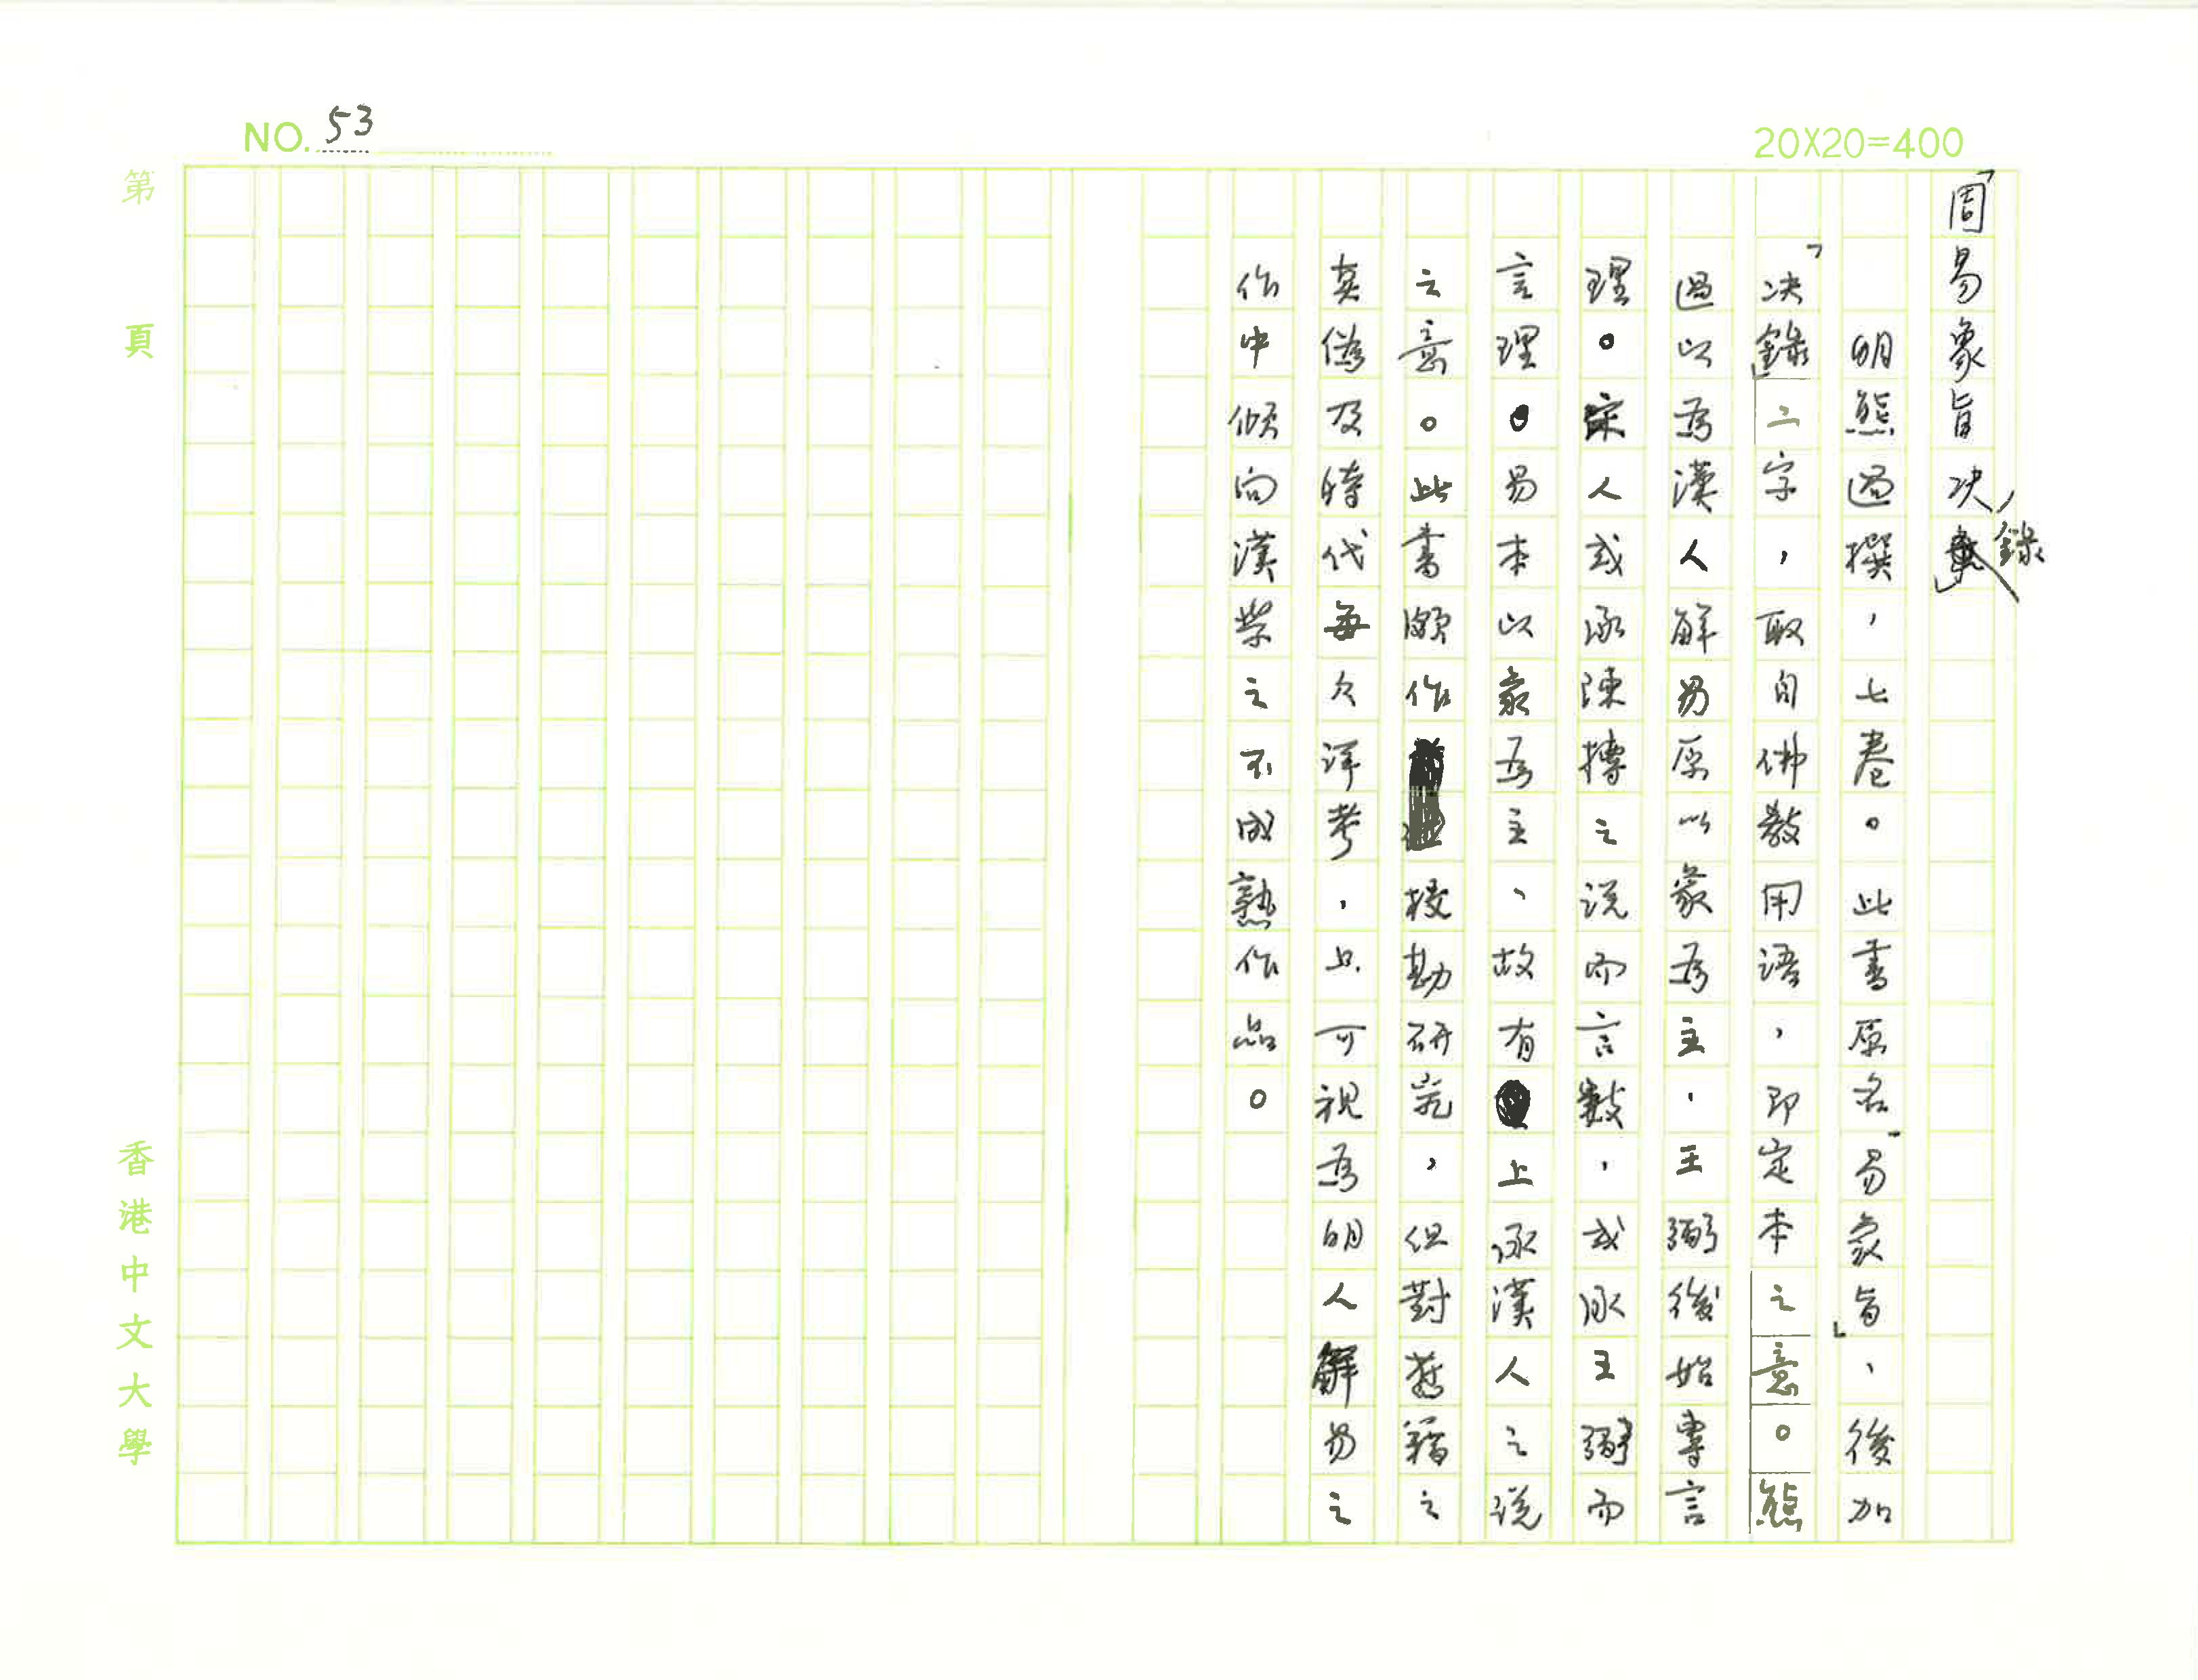 NO. 53
20X20=400
「周易象旨決錄」
明熊過撰，七卷。此書原名「易象旨」，後加
「决錄」二字，取自佛教用語，即定本之意。熊
過以為漢人解易原以象為主，王弼後始專言
理。宋人或承陳摶之說而言數，或承王弼而
言理。易本以象為主，故有上承漢人之說
之意。此書頗作校勘研究，但對舊籍之
真偽及時代每欠詳考，只可視為明人解易之
作中傾向漢學之不成熟作品。
第頁
香港中文大學